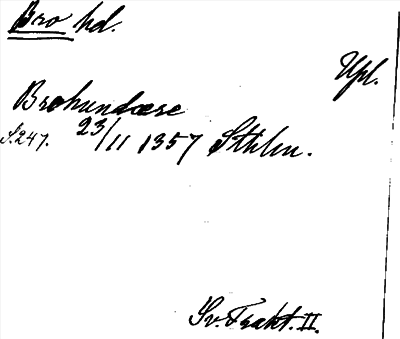 Bro hd.
Upl.
Brohundære
S.247. 23/11 1357 Sthlm.
Sv. Trakt. II.